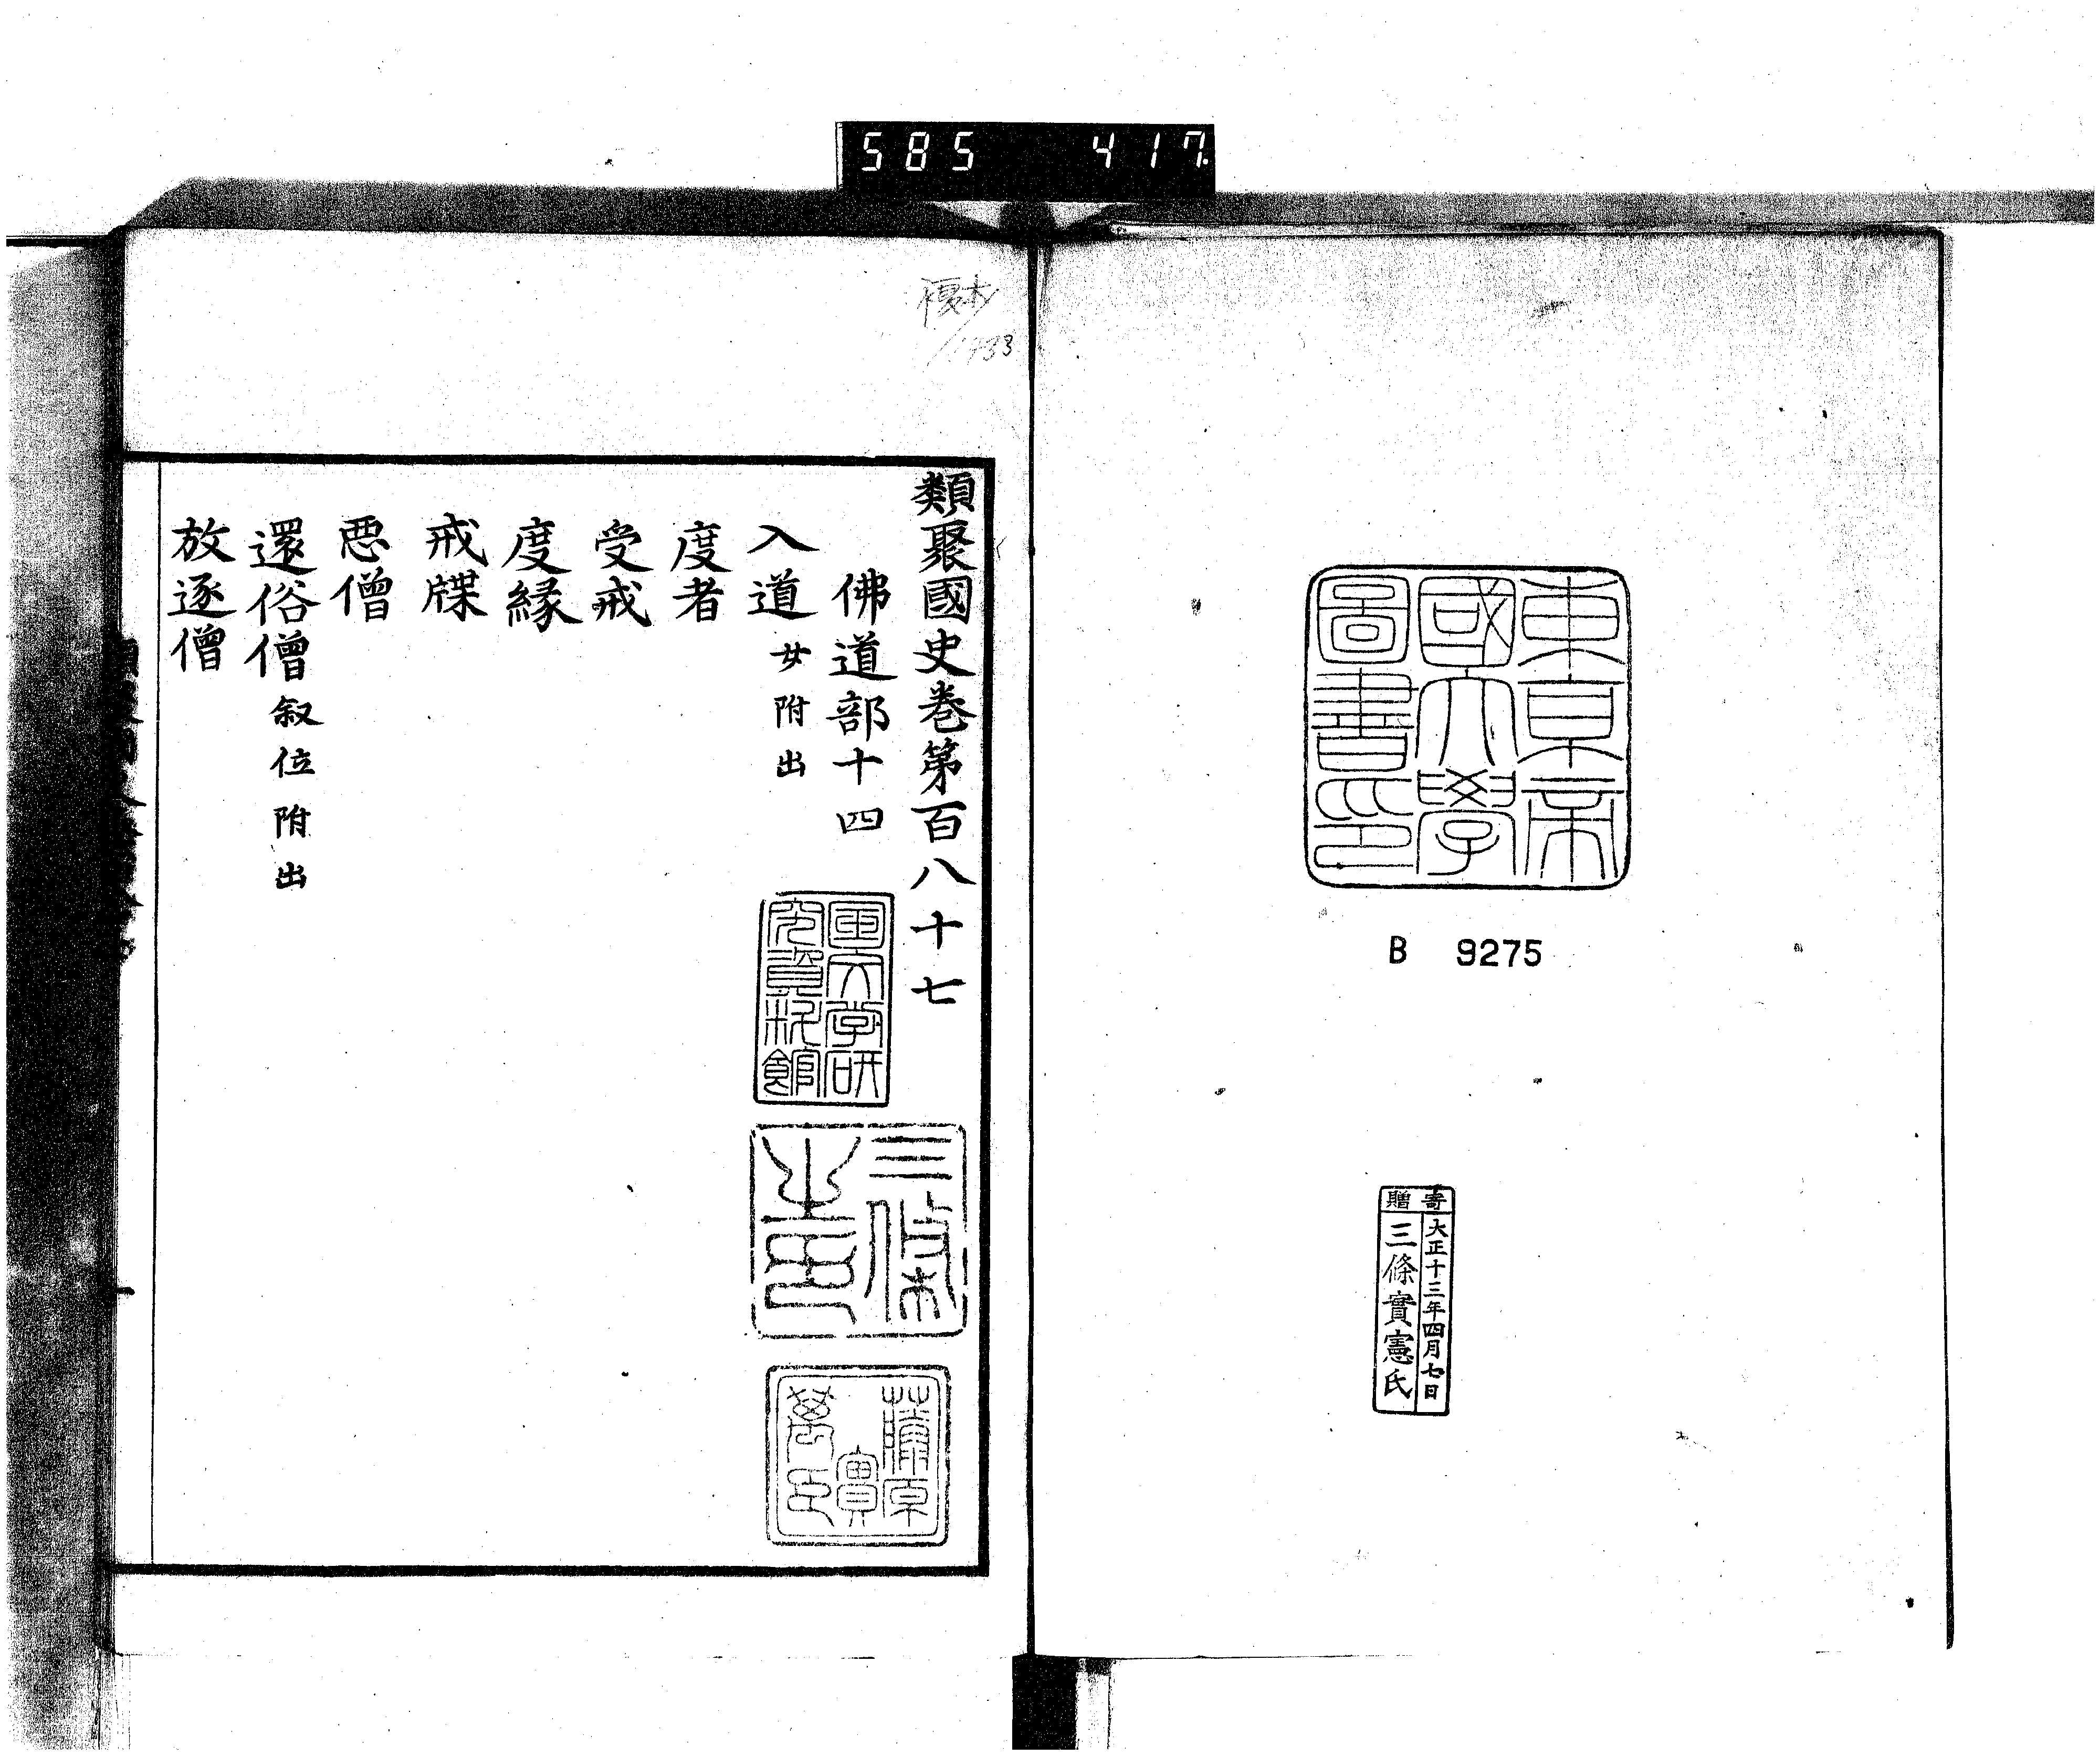 585 417.
東京帝
國大學
圖書印
B 9275
寄贈
大正十三年四月七日
三條實憲氏
類聚國史巻第百八十七
佛道部十四
入道 女附出
度者
受戒
度縁
戒牒
悪僧
還俗僧 叙位附出
放逐僧
国文学研
究資料館
三條
藤原
實
萬印
複本